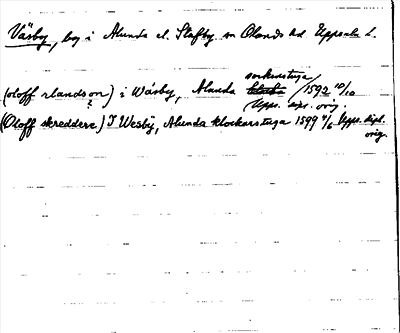 Väsby, by i Alunda el. Stafby sn Olands hd Uppsala l.
sockenstuga
(oloff rlandson) i Wäsby, Alunda /1592 10/10
?
Upps. dipl. orig.
(Oloff skreddere) I Wesbÿ, Alunda klockarstuga 1599 4/6 Upps. dipl.
orig.